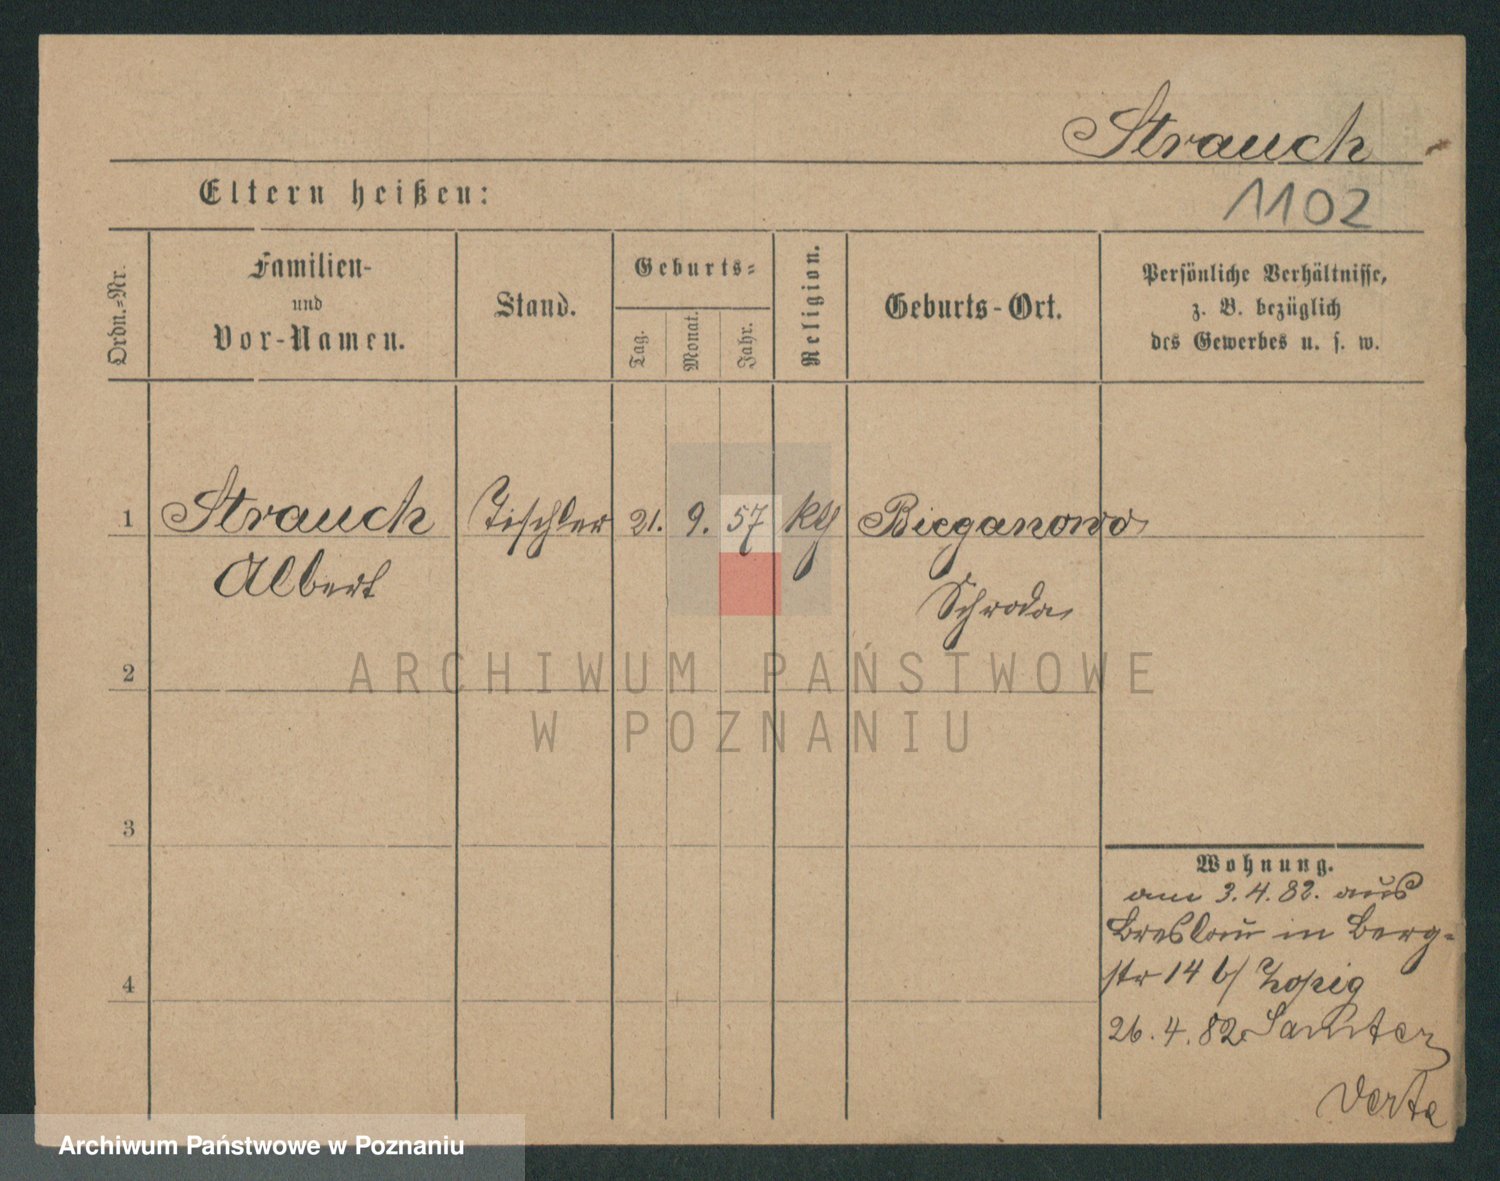 Strauch
1102
Eltern heißen:
Ordn.-Nr.
Familien-
und
Vor-Namen.
Stand.
Geburts-
Tag.
Monat.
Jahr.
Religion.
Geburts-Ort.
Persönliche Verhältnisse,
z. B. bezüglich
des Gewerbes u. s. w.
1 Strauch Tischler 21. 9. 57 Bieganowo
Albert Schroda
2
ARCHIWUM PAŃSTWOWE
W POZNANIU
3
Wohnung.
am 3.4.82. aus
Breslau in Berg-
str 14 b/
4
26.4.82 Samter
Verte
Archiwum Państwowe w Poznaniu